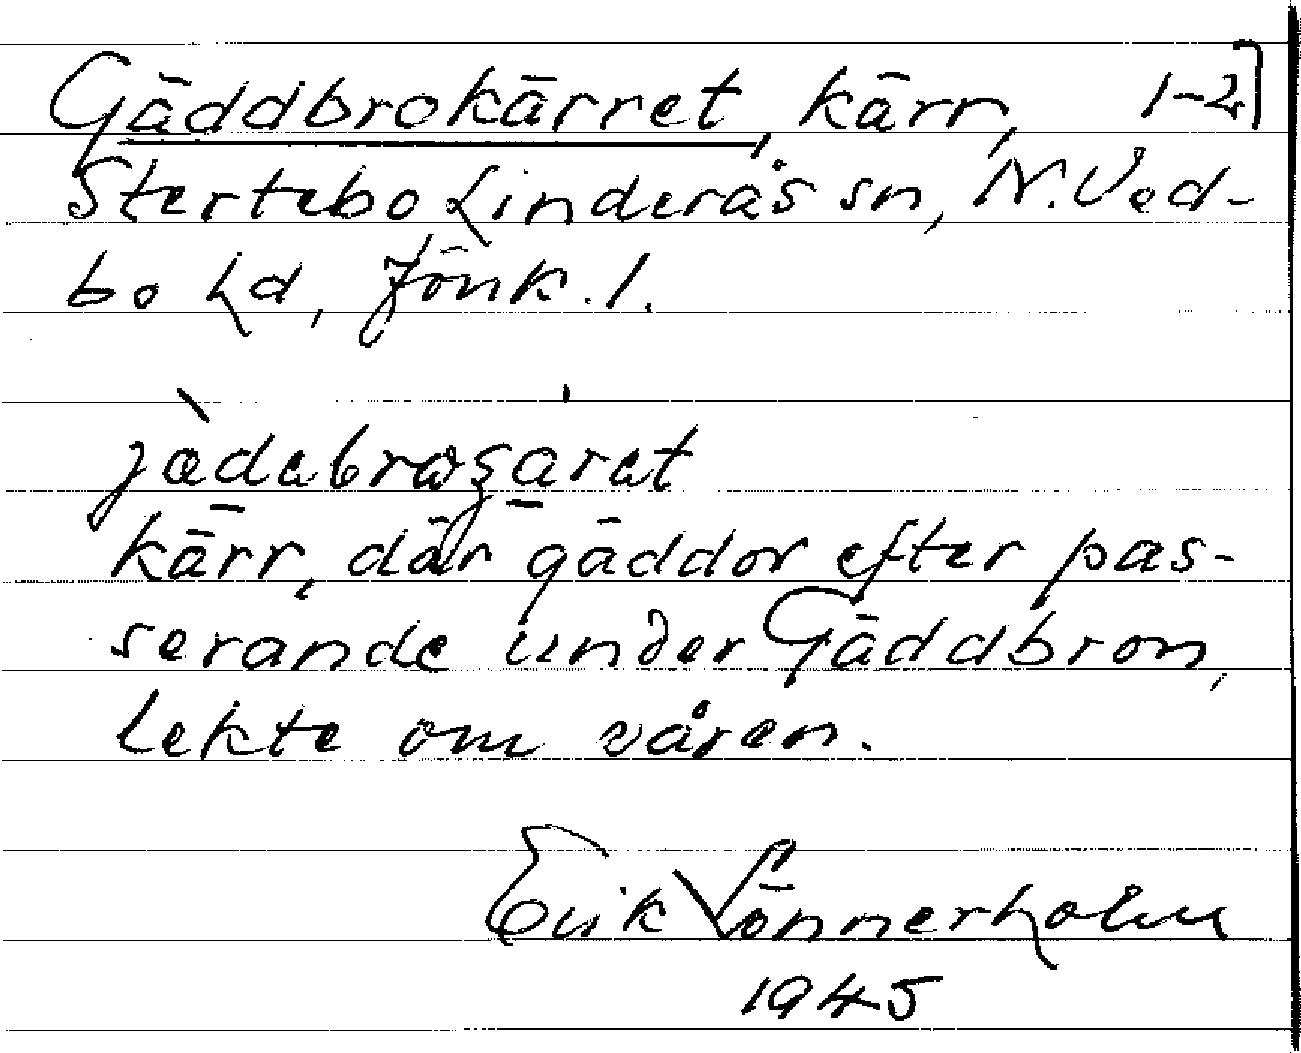 Gäddbrokärret, kärr, 1-2]
Stertebo Linderås sn, N. Ved-
bo hd, Jönk. l.
jädabroʒarət
kärr, där gäddor efter pas-
serande under Gäddbron,
lekte om våren.
Erik Lönnerholm
1945